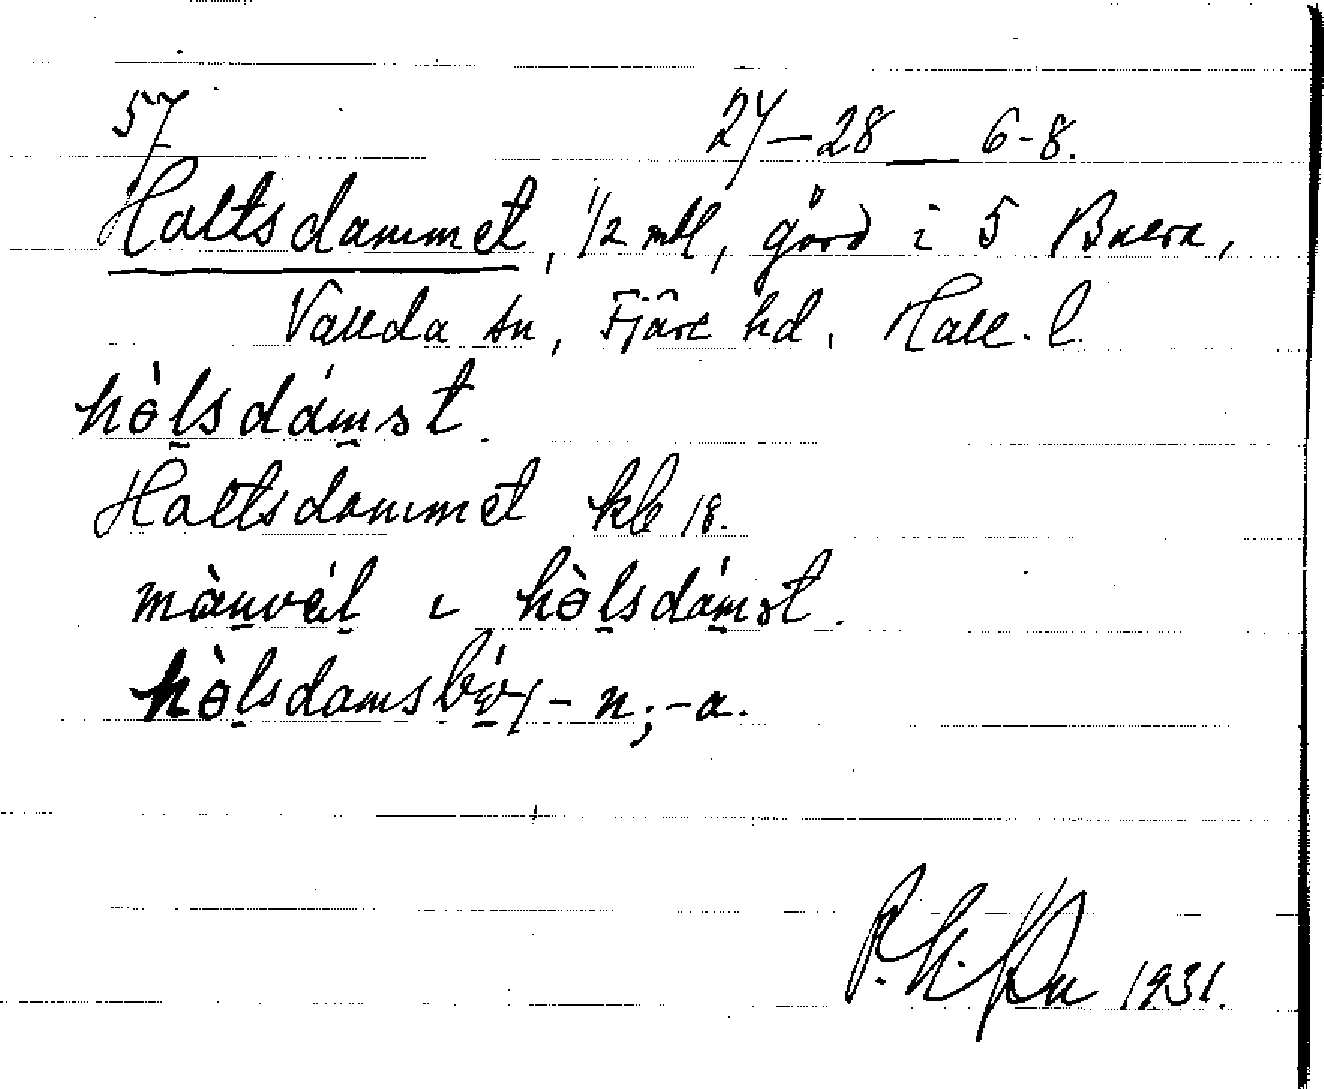 57 27-28 6-8.
Haltsdammet, 1/2 mtl, gård i 5 Buera,
Vallda sn, Fjäre hd. Hall. l.
hòḻsdám̱ət.
Haltsdammet kb 18.
màṉvéḻ ɩ hòḻsdám̱ət.
hòḻsdamsbó̱ɣ -n; -a.
1931.